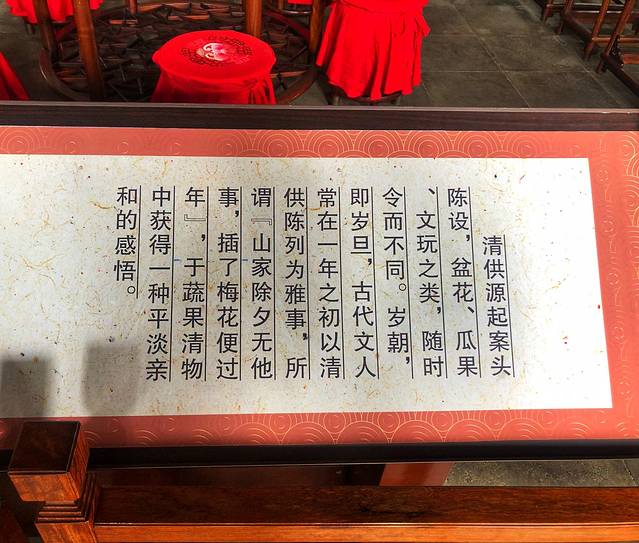 清供源起案头
陈设，盆花、瓜果
、文玩之类，随时
令而不同。岁朝，
即岁旦，古代文人
常在一年之初以清
供陈列为雅事，所
谓『山家除夕无他
事，插了梅花便过
年』，于蔬果清物
中获得一种平淡亲
和的感悟。